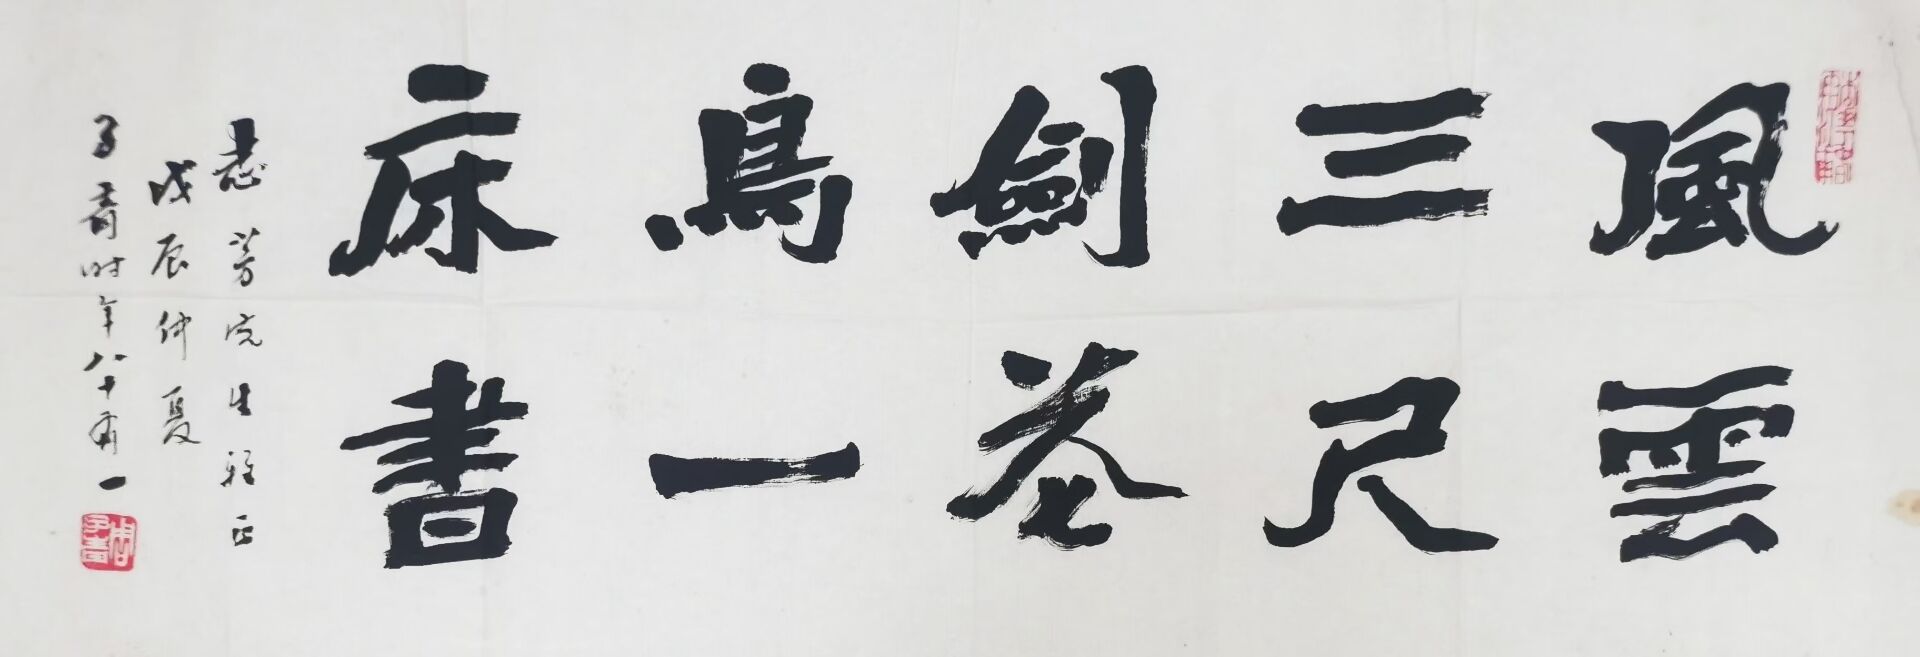 風雲
三尺
劍花
鳥一
床書
芳先生雅正
戊辰仲夏
子青时年八十有一